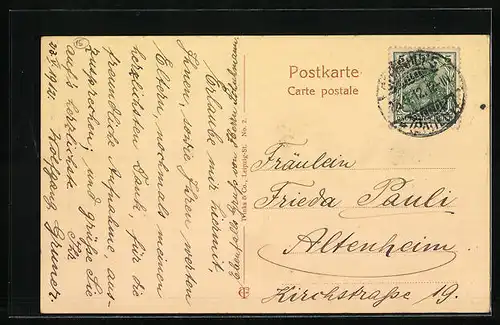 Postkarte
Carte postale
Fräulein
Frieda Pauli
Altenheim
Kirchstraße 19.
Trinks & Co., Leipzig-St. No. 2.
Erlaube mir hiermit,
Ihnen, sowie Ihren werten
Eltern, nochmals meinen
herzlichsten Dank, für die
freundliche Aufnahme, aus-
zusprechen; und grüße Sie
aufs herzlichste Ihr
1912. Wolfgang Gruner